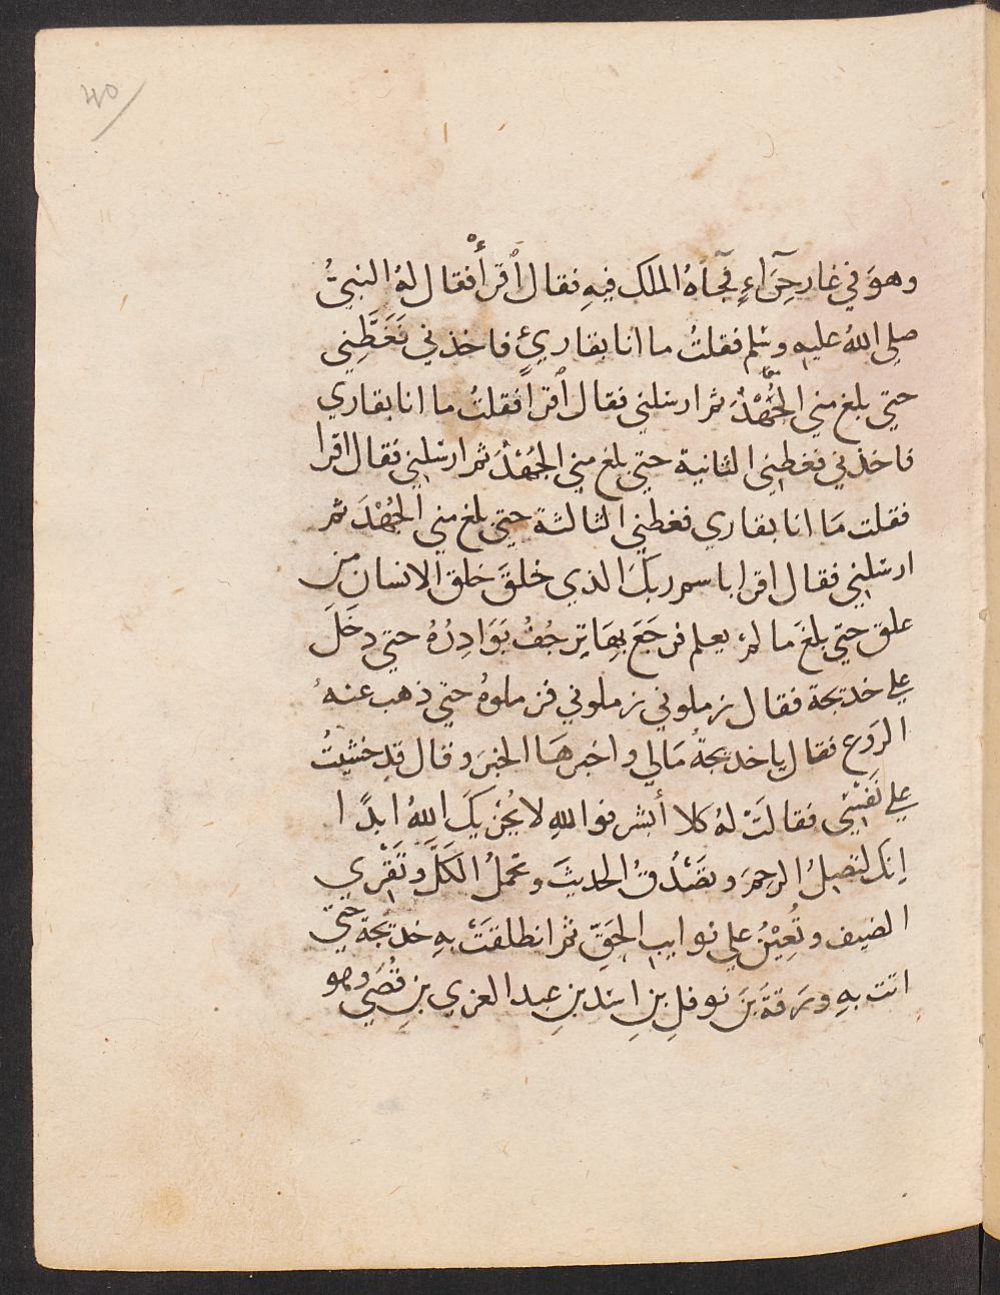 40
وهوَ في غار حِرَآءٍ فجآهُ الملك فيهِ فقال اْقرأْ فقال لهُ النبيُّ
صلي اللهُ عليهِ وسَلم فقلتُ ما انا بقارئٍ فاخذني فَغَطَّنِي
حتي بلغ مني الجُهْدُ ثم ارسَلني فقال اْقرأ فقلتُ ما انا بقاري
فاخذني فغطني الثانية حتي بلغ مني الجُهْدَ ثم ارسَلني فقال اقرا
فقلت مَا انا بقاري فغطني الثالثة حتي بلغ مني الجُهْدَ ثم
ارسَلني فقال اقرا باسم ربكَ الذي خلقَ خلق الانسان من
علق حتي بلغَ ما لم يعلم فرجَعَ بِهَا تِرجُفُ بَوَادِرُهُ حتي دخَلَ
علي خديجة فقال زملوني زملوني فزملوهُ حتي ذهب عنهُ
الروَع فقال يا خديجةُ مَالي واخبرهَا الخبرَ وقال قد خشيتُ
علي نَفسِْي فقالَتْ لهُ كلا أبشر فواللهِ لا يُخْزيكَ اللهُ ابدًا
إنك لتصِلُ الرحِمَ وتصَْدُقُ الحديثَ وتحملُ الكَلَّ وتَقْرِي
الضيف وتُعِيْنُ علي نوايب الحَقِّ ثم انطلقَتْ بهِ خديجة حتيّ
اتت بهِ ورَقةَ بَنَ نوفلِ بنِ اسَد بنِ عبد العزي بنِ قُصَي وهو